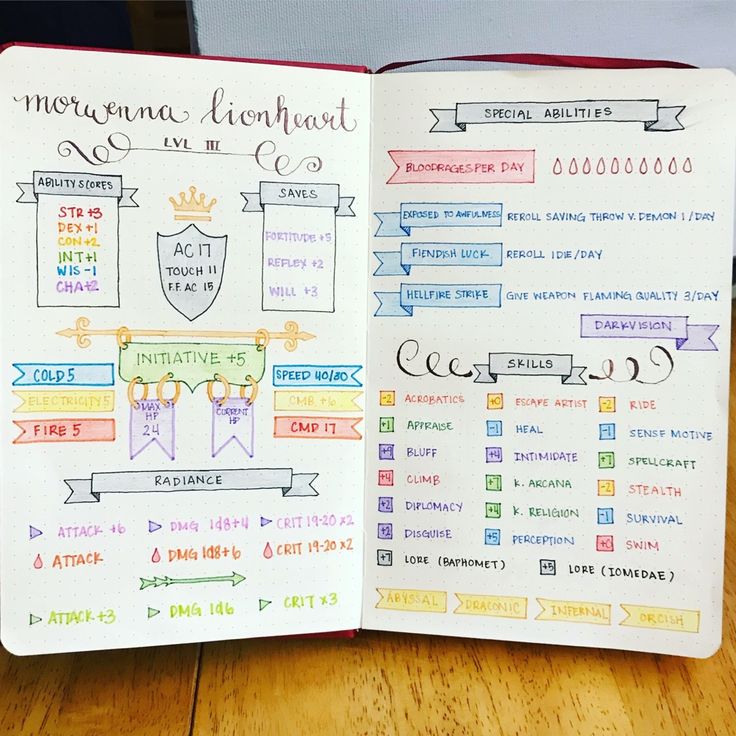 morwenna lionheart
LVL III
ABILITY SCORES
STR +3
DEX +1
CON +2
INT +1
WIS -1
CHA +2
AC 17
TOUCH 11
F.F. AC 15
SAVES
FORTITUDE +5
REFLEX +2
WILL +3
INITIATIVE +5
COLD 5
ELECTRICITY 5
FIRE 5
MAX
HP
24
CURRENT
HP
SPEED 40/30
CMB +6
CMD 17
RADIANCE
ATTACK +6 DMG 1d8+4 CRIT 19-20 x2
ATTACK DMG 1d8+6 CRIT 19-20 x2
ATTACK +3 DMG 1d6 CRIT x3
SPECIAL ABILITIES
BLOODRAGES PER DAY
EXPOSED TO AWFULNESS REROLL SAVING THROW V. DEMON 1/DAY
FIENDISH LUCK REROLL 1 DIE/DAY
HELLFIRE STRIKE GIVE WEAPON FLAMING QUALITY 3/DAY
DARKVISION
SKILLS
-2 ACROBATICS +0 ESCAPE ARTIST -2 RIDE
+1 APPRAISE -1 HEAL -1 SENSE MOTIVE
+9 BLUFF +4 INTIMIDATE +7 SPELLCRAFT
+4 CLIMB +7 K. ARCANA -2 STEALTH
+2 DIPLOMACY +4 K. RELIGION -1 SURVIVAL
+2 DISGUISE +5 PERCEPTION +0 SWIM
+7 LORE (BAPHOMET) +5 LORE (IOMEDAE)
ABYSSAL DRACONIC INFERNAL ORCISH